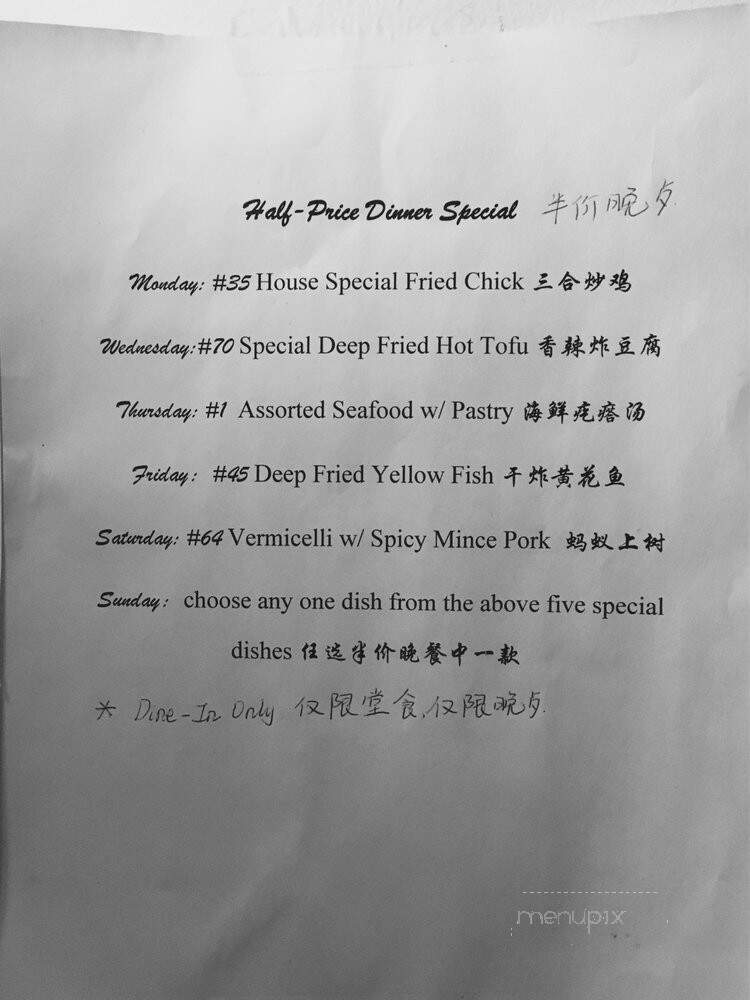 Half-Price Dinner Special 半价晚歺
Monday: #35 House Special Fried Chick 三合炒鸡
Wednesday:#70 Special Deep Fried Hot Tofu 香辣炸豆腐
Thursday: #1 Assorted Seafood w/ Pastry 海鲜疙瘩汤
Friday: #45 Deep Fried Yellow Fish 干炸黄花鱼
Saturday: #64 Vermicelli w/ Spicy Mince Pork 蚂蚁上树
Sunday: choose any one dish from the above five special
dishes 任选半价晚餐中一款
* Dine-In Only 仅限堂食,仅限晚歺.
menupix